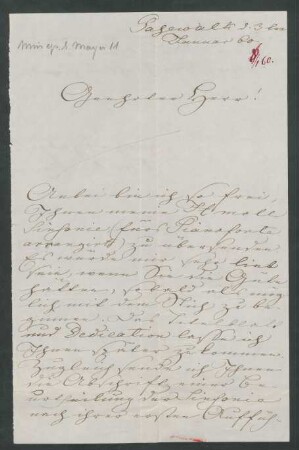 Pasewalk d. 3ten
Januar 60.
Geehrter Herr!
Anbei bin ich so frei,
Ihnen meine H moll
Sinfonie (fürs Pianoforte
arrangirt) zu übersenden.
Es würde mir sehr lieb
sein, wenn Sie die Güte
hätten, sobald als mög-
lich mit dem Stich zu be-
ginnen. Das Titelblatt
nebst Dedication lasse ich
Ihnen später zukommen.
Zugleich sende ich Ihnen
die Abschrift einer Be-
urtheilung der Sinfonie
nach ihrer ersten Auffüh-